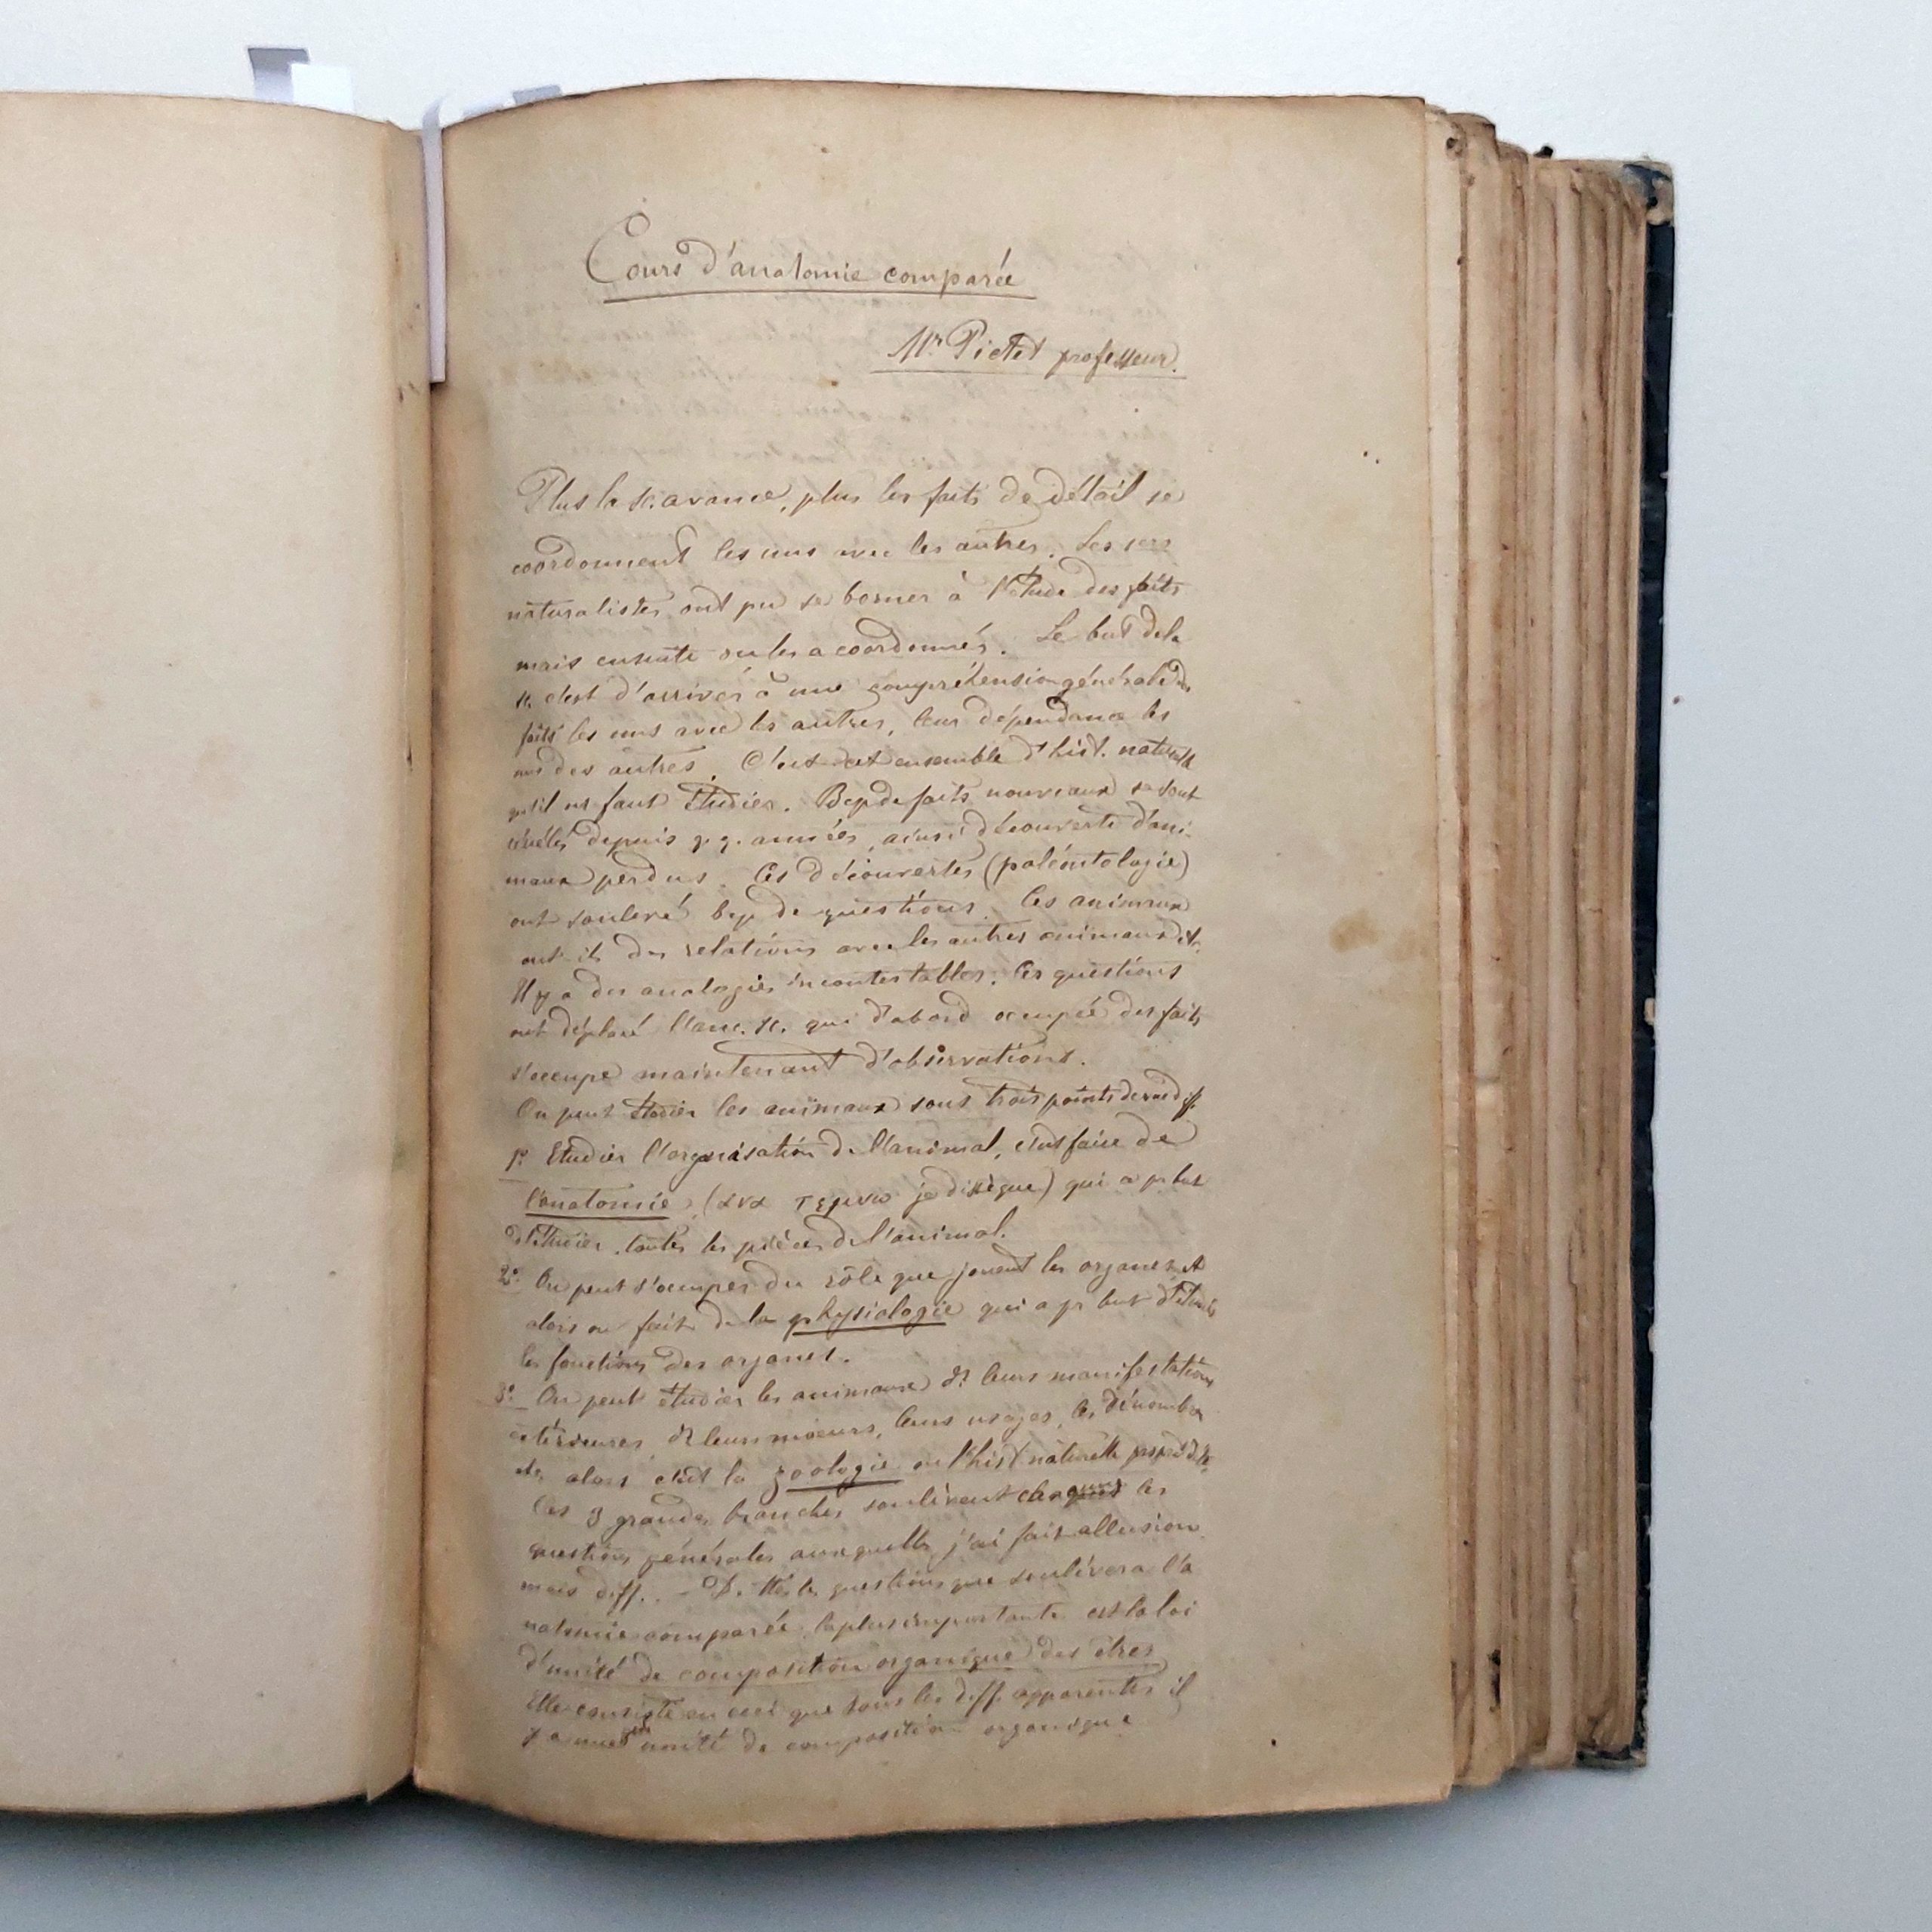 Cours d'anatomie comparée
Mr Pictet professeur.
Plus la sc. avance, plus les faits de détail se
coordonnent les uns avec les autres. Les 1ers
naturalistes ont pu se borner à l'étude des faits
mais ensuite on les a coordonnés. Le but de la
sc. c'est d'arriver à une compréhension générale des
faits les uns avec les autres, leur dépendance les
uns des autres. C'est cet ensemble d'hist. naturelle
qu'il ns faut étudier. Bcp de faits nouveaux se sont
révélés depuis q.q. années, ainsi découverte d'ani-
maux perdus. Ces découvertes (paléontologie)
ont soulevé bcp de questions. Ces animaux
ont-ils des relations avec les autres animaux etc.
Il y a des analogies incontestables. Ces questions
ont déplacé l'anc. sc. qui d'abord occupée des faits
s'occupe maintenant d'observations.
On peut étudier les animaux sous trois points de vue diff.
1º Etudier l'organisation de l'animal, c'est faire de
l'anatomie (ανα τεμνω je dissèque) qui a pr but
d'étudier toutes les pièces de l'animal.
2º On peut s'occuper du rôle que jouent les organes et
alors on fait de la physiologie qui a pr but d'étudier
les fonctions des organes.
3º On peut étudier les animaux ds leurs manifestations
extérieures, ds leurs mœurs, leurs usages, les dénombrer
etc, alors c'est la zoologie ou l'hist naturelle
Ces 3 grandes branches soulèvent les
questions générales auxquelles j'ai fait allusion
mais diff. - D. ttes les questions que soulèvera l'a
natomie comparée, la plus importante est la loi
d'unité de composition organique des êtres
Elle consiste en ceci que sous les diff. apparentes il
y a une unité de composition organique